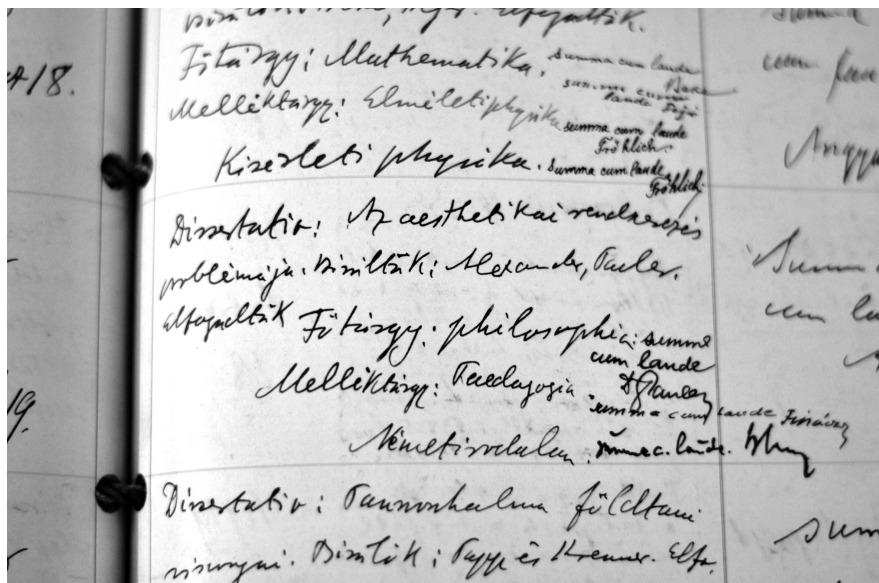 18.
Főtárgy: Mathematika. summa cum laude
summa cum laude
Melléktárgy: Elméleti physika summa cum laude Fröhlich.
Kiserleti physika. summa cum laude Fröhlich
Dissertatio: Az aesthetikai rendszerezés
problémája. Birálták: Alexander, Pauler.
Elfogadták Főtárgy: philosophia: summa
cum laude
Melléktárgy: Paedagogia Dr Pauler
summa cum laude Fináczy
Németirodalom: summa c. laude.
19.
Dissertatio: Pannonhalma földtani
viszonyai. Birálták: Papp és Krenner. Elfo.
Summa
cum la
sum